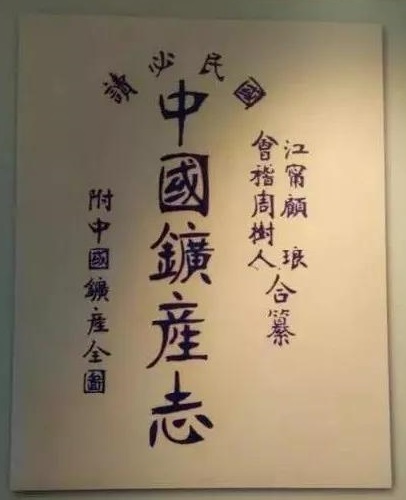 國民必讀
江甯顧琅
會稽周樹人
合纂
中國鑛産志
附中國鑛産全圖